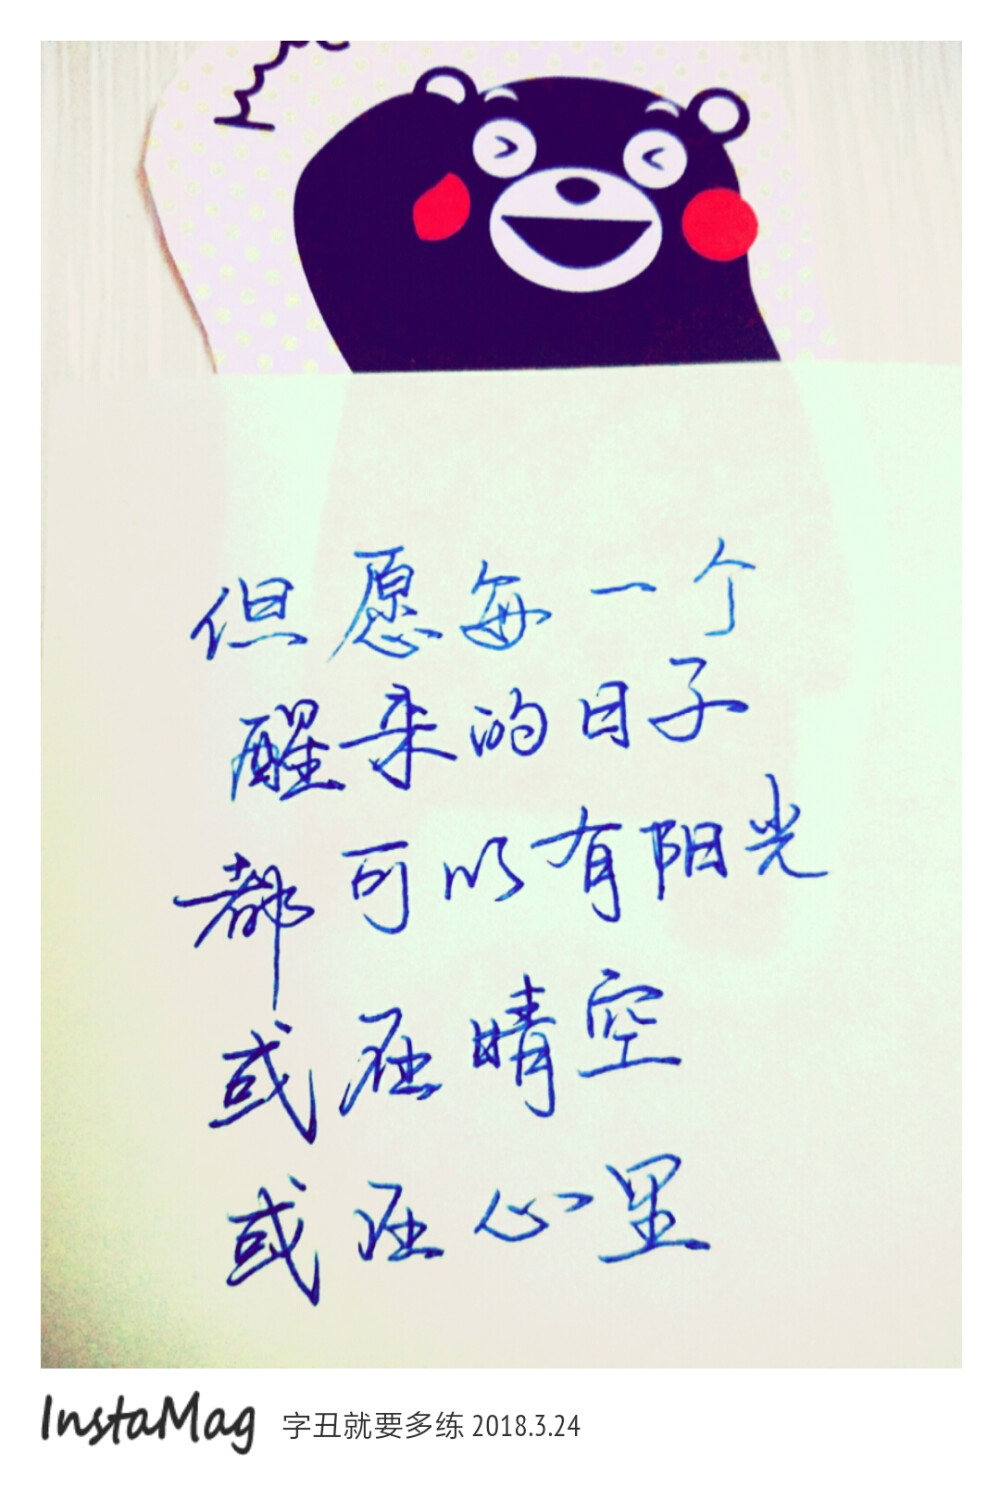 但愿每一个
醒来的日子
都可以有阳光
或在晴空
或在心里
InstaMag 字丑就要多练 2018.3.24